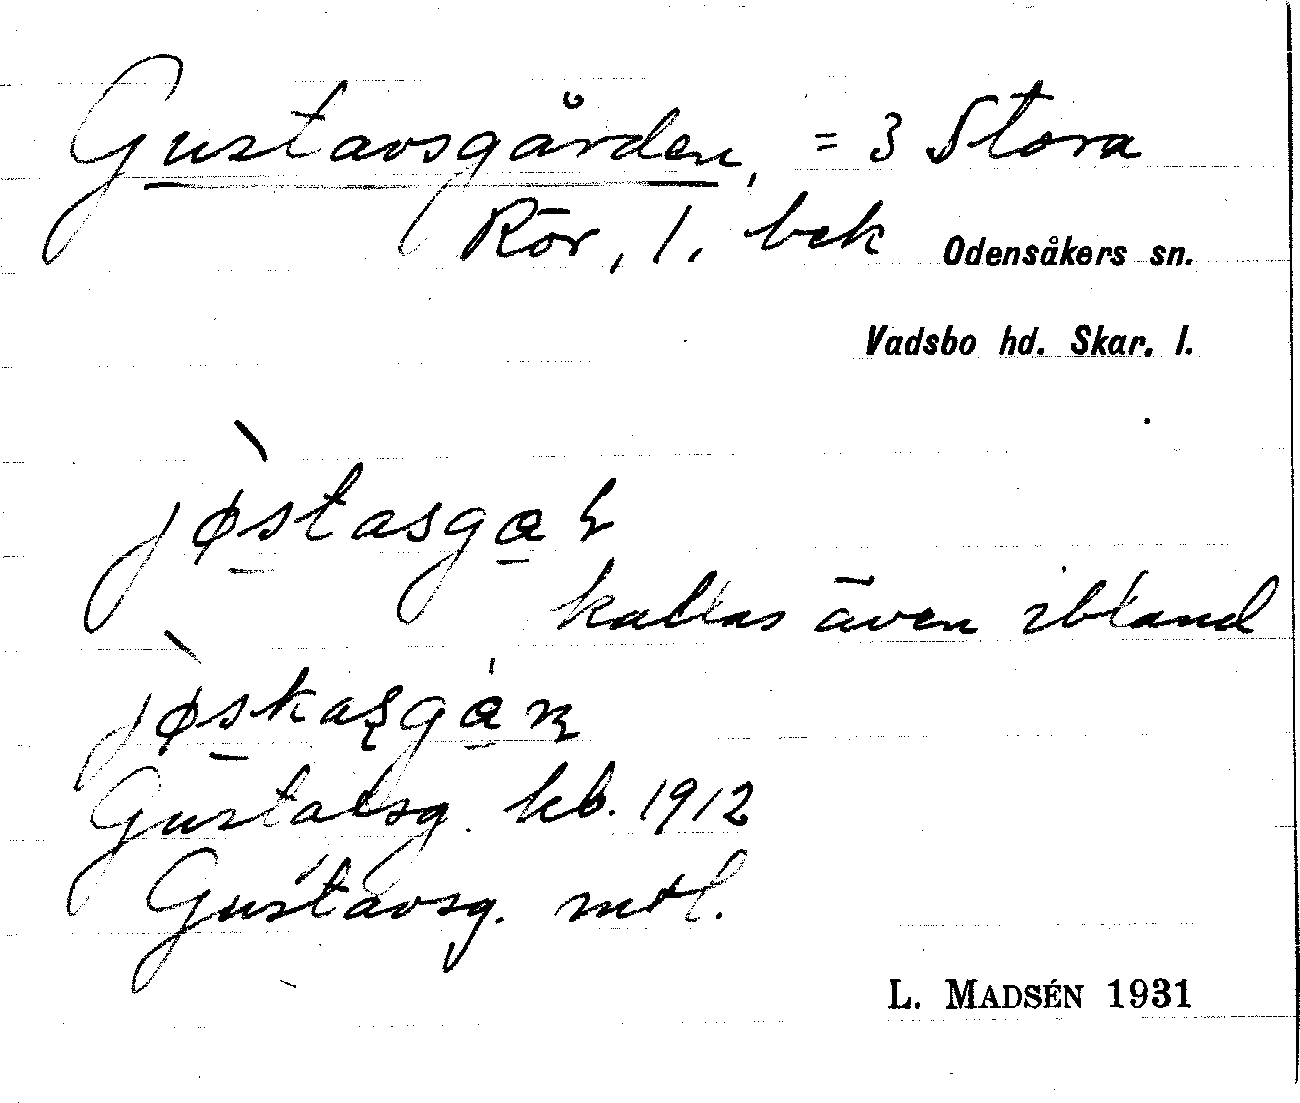 Gustavsgården, = 3 Stora
Rör, 1. bek
Odensåkers sn.
Vadsbo hd. Skar. l.
jø̀stasgaɽ
kallas även ibland
jø̀skasgáɳ
Gustafsg. kb. 1912
Gustavsg. mtl.
L. MADSÉN 1931